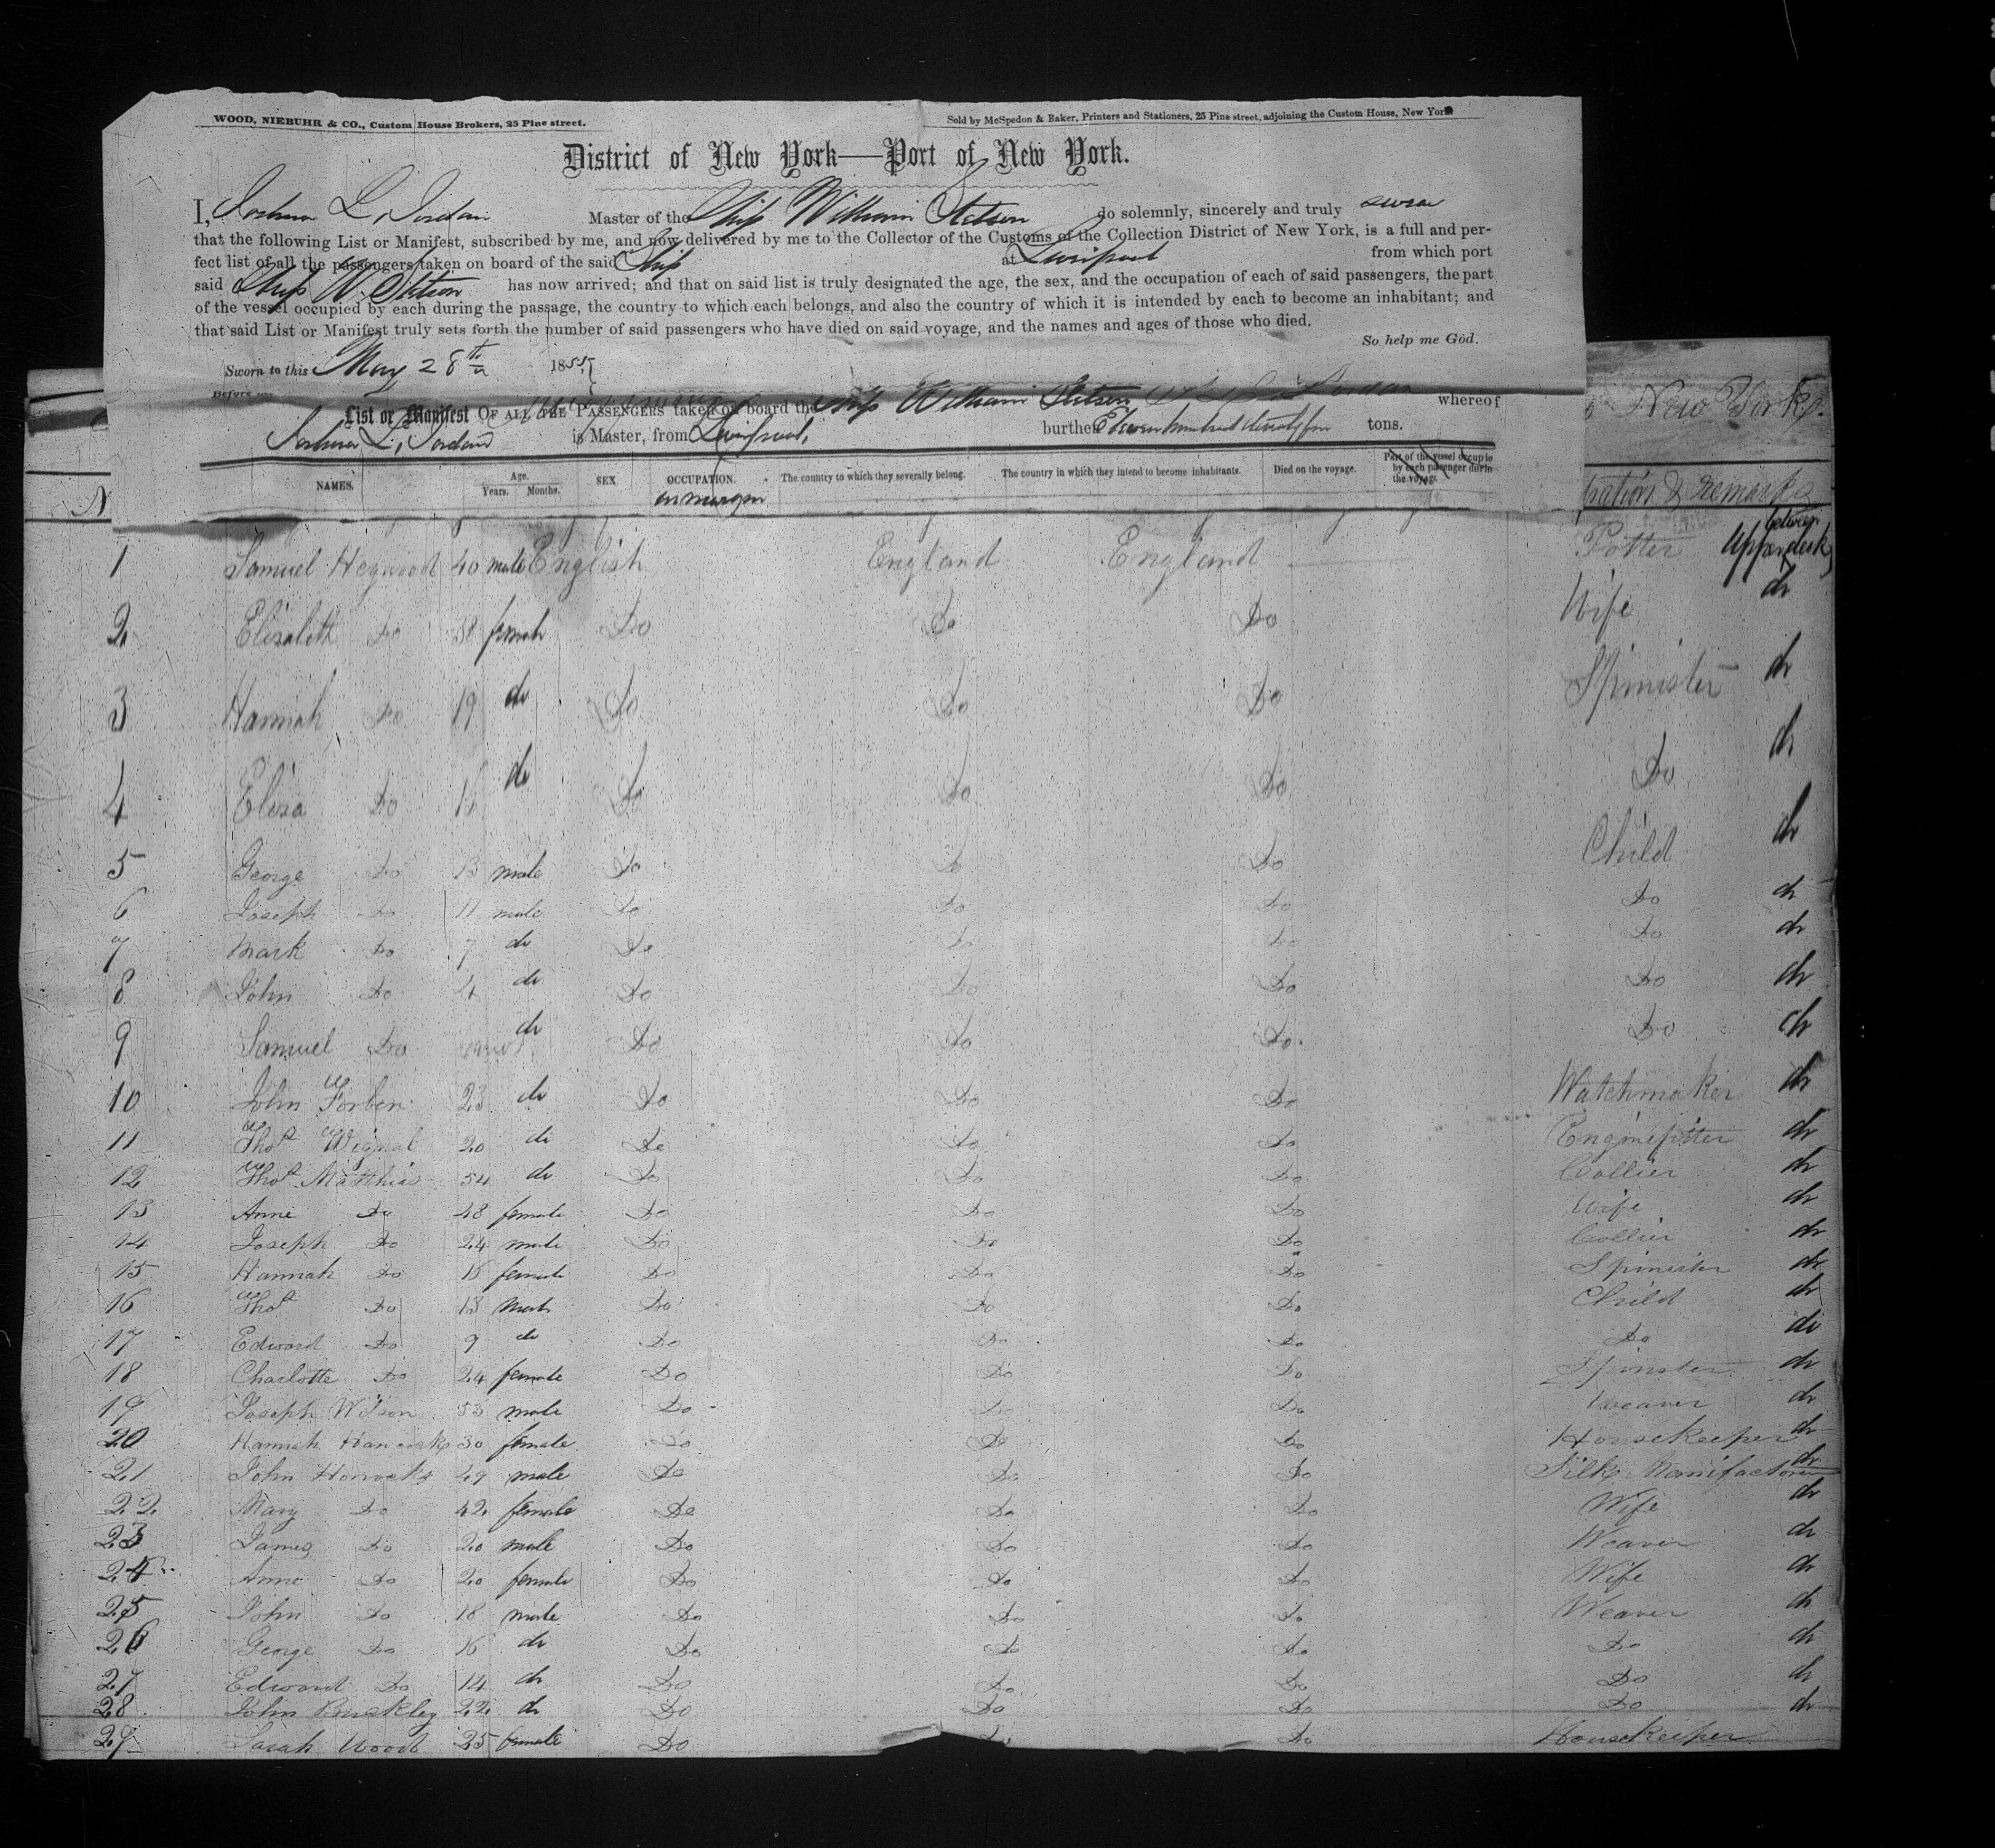 WOOD, NIEBUHR & CO., Custom House Brokers, 25 Pine street.
Sold by McSpedon & Baker, Printers and Stationers, 25 Pine street, adjoining the Custom House, New York
District of New York—Port of New York.
I, Joshua L. Jordan Master of the Ship William Stetson do solemnly, sincerely and truly swear
that the following List or Manifest, subscribed by me, and now delivered by me to the Collector of the Customs of the Collection District of New York, is a full and per-
fect list of all the passengers taken on board of the said Ship at Liverpool from which port
said Ship W. Stetson has now arrived; and that on said list is truly designated the age, the sex, and the occupation of each of said passengers, the part
of the vessel occupied by each during the passage, the country to which each belongs, and also the country of which it is intended by each to become an inhabitant; and
that said List or Manifest truly sets forth the number of said passengers who have died on said voyage, and the names and ages of those who died.
So help me God.
Sworn to this May 28th 1855
Before me
List or Manifest OF ALL THE PASSENGERS taken on board the Ship William Stetson whereof
New York.
Joshua L. Jordan is Master, from Liverpool, burthen Eleven hundred tons.
NAMES. Age. Years. Months. SEX OCCUPATION. The country to which they severally belong. The country in which they intend to become inhabitants. Died on the voyage. Part of the vessel occupie by each passenger durin the voyage.
in margin
pation & remarks
1 Samuel Heywood 40 male English England England Potter between Upper decks
2 Elizabeth Do 38 female Do Do Do Wife do
3 Hannah Do 19 do Do Do Do Spinister do
4 Eliza Do do Do Do Do Do do
5 George Do 13 male Do Do Do Child do
6 Joseph Do 11 male Do Do Do Do do
7 Mark Do 7 do Do Do Do Do do
8 John Do 4 do Do Do Do Do do
9 Samuel Do do Do Do Do Do do
10 John 23 do Do Do Do Watchmaker do
11 Thos 20 do Do Do Do do
12 Thos Matthias 54 do Do Do Do Collier do
13 Anne Do 48 female Do Do Do Wife do
14 Joseph Do 24 male Do Do Do Collier do
15 Hannah Do female Do Do Do Spinister do
16 Thos Do 13 male Do Do Do Child do
17 Edward Do 9 do Do Do Do Do do
18 Charlotte Do 24 female Do Do Do Spinster do
19 Joseph Wilson 53 male Do Do Do Weaver do
20 Hannah 30 female Do Do Do Housekeeper do
21 John Horrocks 49 male Do Do Do Silk Manifacturer do
22 Mary Do 42 female Do Do Do Wife do
23 James Do 20 male Do Do Do Weaver do
24 Anne Do 20 female Do Do Do Wife do
25 John Do 18 male Do Do Do Weaver do
26 George Do 16 do Do Do Do Do do
27 Edward Do 14 do Do Do Do Do do
28 John Buckley 22 do Do Do Do Do do
29 Sarah Wood 25 female Do Do Housekeeper